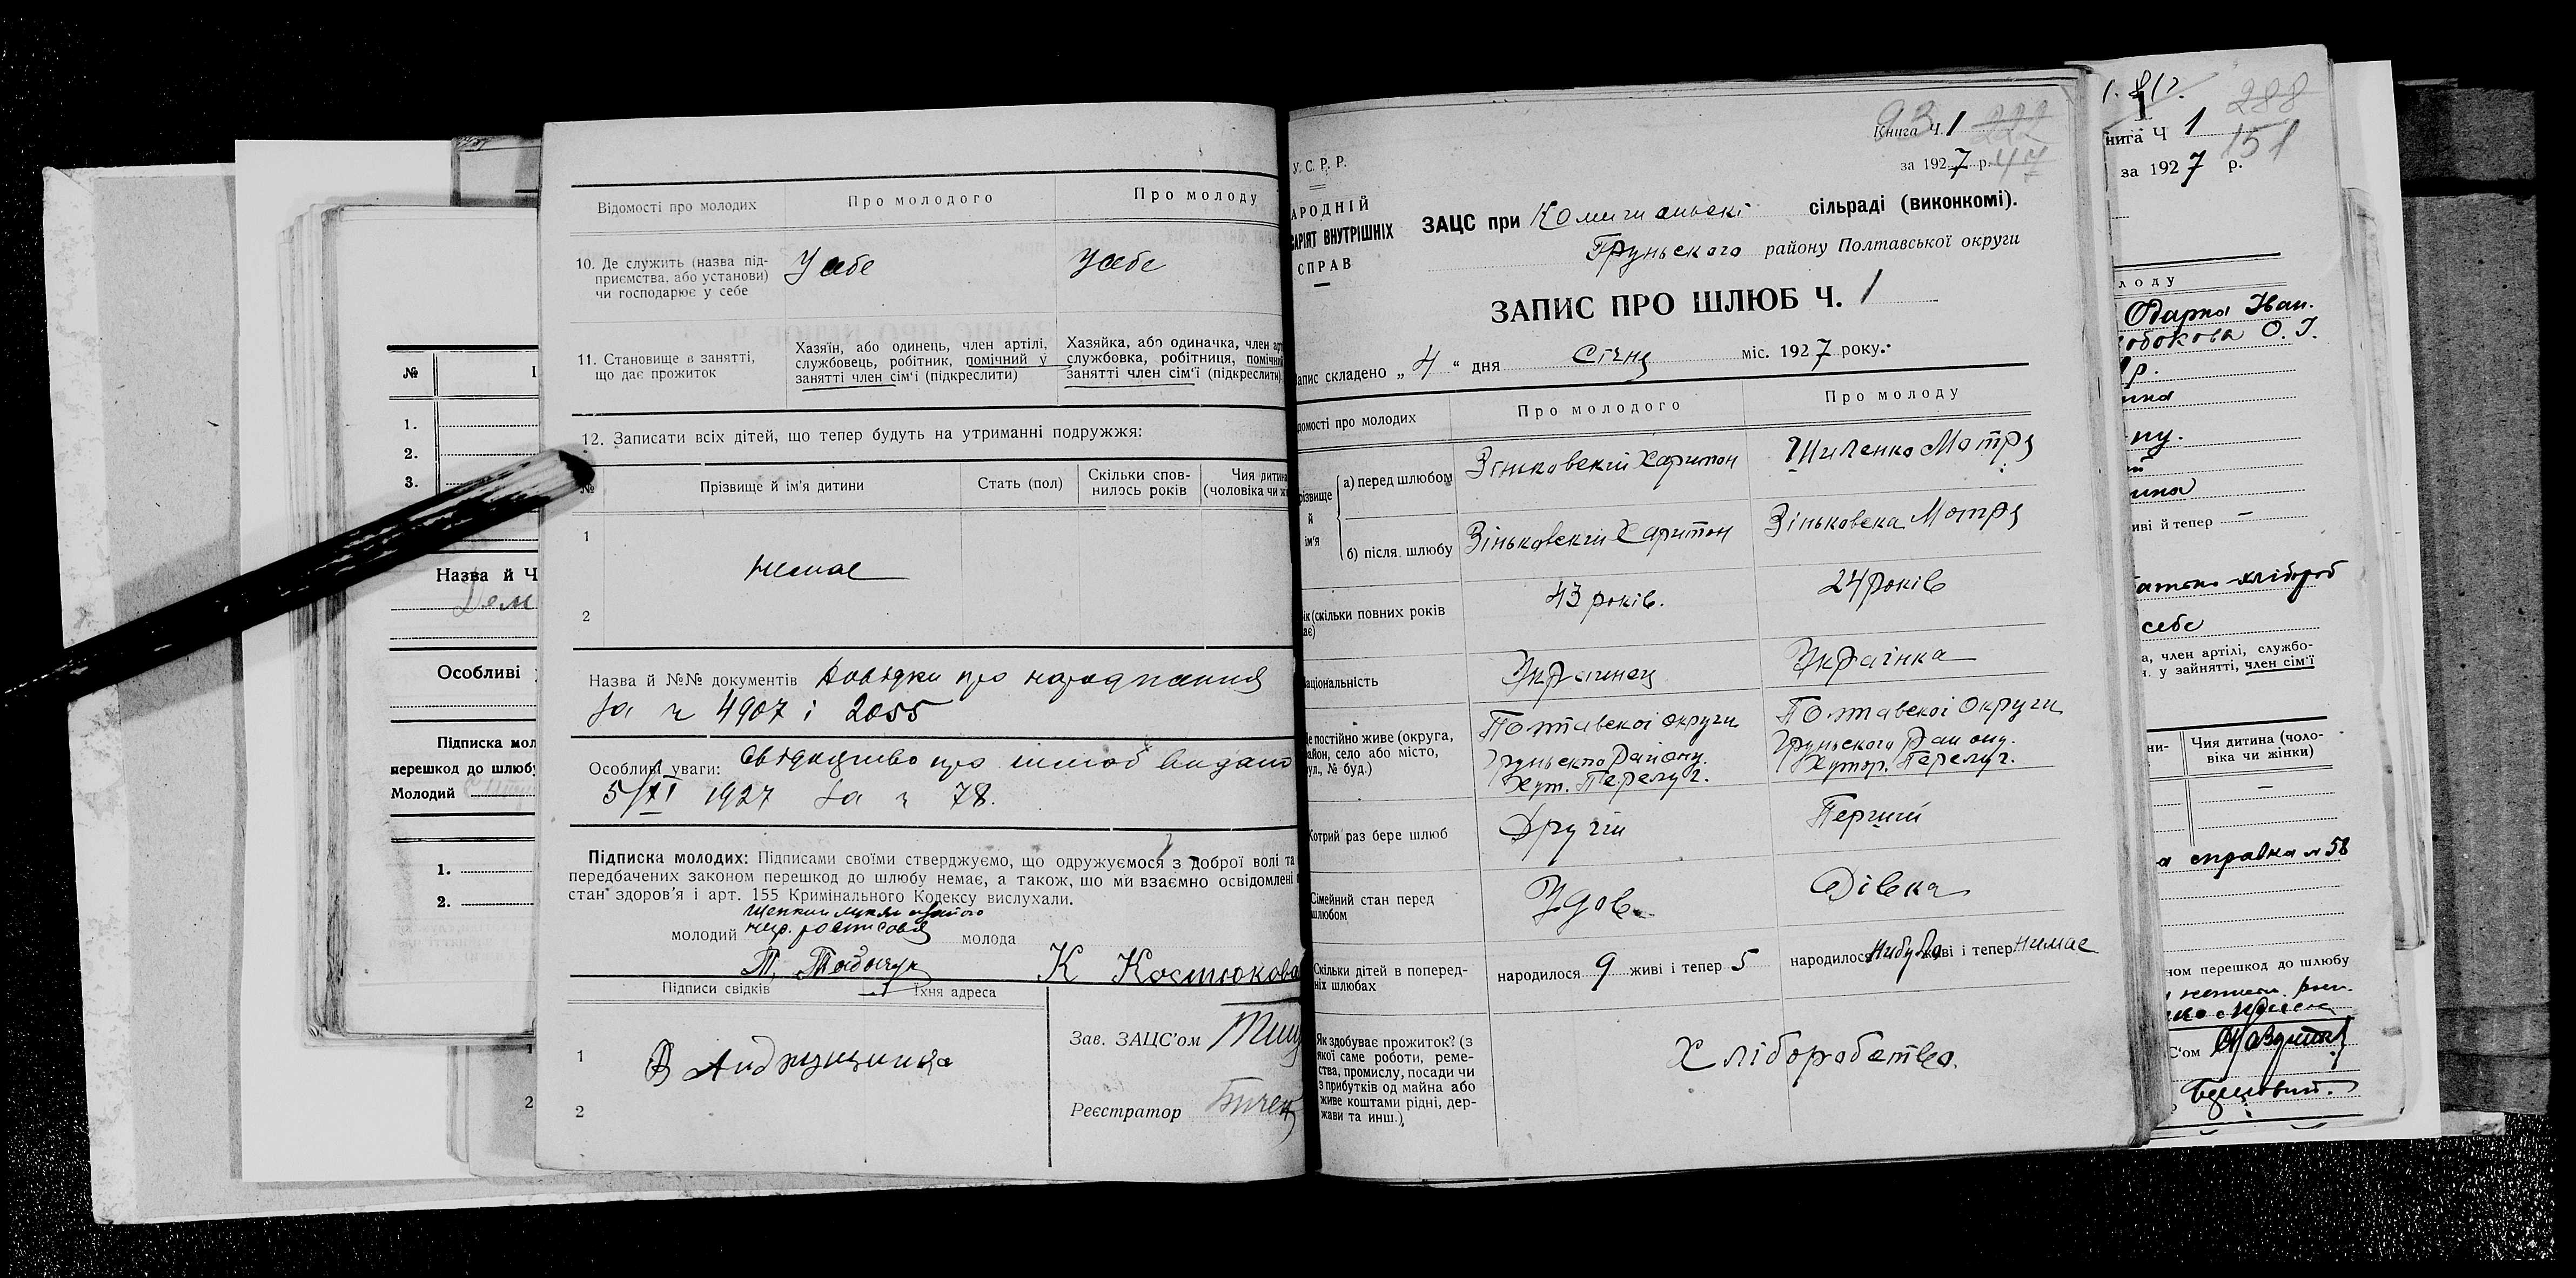 Відомості про молодих
Про молодого
Про молоду
10. Де служить (назва під-
приємства, або установи)
чи господарює у себе
У себе
У себе
11. Становище в занятті,
що дає прожиток
Хазяїн, або одинець, член артілі,
службовець, робітник, помічний у
занятті член сім'ї (підкреслити)
Хазяйка, або одиначка, член
службовка, робітниця, помічни
занятті член сім'ї (підкреслити)
12. Записати всіх дітей, що тепер будуть на утриманні подружжя:
№
Прізвище й ім'я дитини
Стать (пол)
Скільки спов-
нилось років
Чия дитина
(чоловіка чи
1
немае
2
Назва й №№ документів Довідки про народження
за ч 4907 і 2055
Особливі уваги: Свідоцтво про шлюб видано
5/XI 1927 за ч 78.
Підписка молодих: Підписами своїми стверджуємо, що одружуємося з доброї волі та
передбачених законом перешкод до шлюбу немає, а також, що ми взаємно освідомлені
стан здоров'я і арт. 155 Кримінального Кодексу вислухали.
молодий
молода
К Костюкова
Підписи свідків
Їхня адреса
1
2
Зав. ЗАЦС'ом
Реєстратор
№
1.
2.
3.
Назва й Ч
Особливі
Підписка мол
перешкод до шлюбу
Молодий
1.
2.
Книга Ч. 1
93
222
за 1927 р.
47
У. С. Р. Р.
АРОДНІЙ
САРІЯТ ВНУТРІШНІХ
СПРАВ
ЗАЦС при Комишанські сільраді (виконкомі).
Груньского району Полтавської округи
ЗАПИС ПРО ШЛЮБ Ч. 1
Запис складено „ 4 “ дня Січня міс. 1927 року:
домості про молодих
Про молодого
Про молоду
різвище
й
ім'я
а) перед шлюбом
Зіньковский Харитон
Шиленко Мотря
б) після шлюбу
Зіньковский Харитон
Зіньковска Мотря
ік (скільки повних років
ає)
43 років.
24 років
аціональність
Украінец
Украінка
Де постійно живе (округа,
район, село або місто,
вул., № буд.)
Полтавскоі округи
Груньского Району.
Хут. Перелуг.
Полтавскоі Округи
Груньского Району.
Хутор. Перелуг.
Котрий раз бере шлюб
Другий
Перший
Сімейний стан перед
шлюбом
Удов.
Дівка
Скільки дітей в поперед-
ніх шлюбах
народилося 9 живі і тепер 5
народилося Нибуло живі і тепер Нимае
Як здобуває прожиток? (з
якої саме роботи, реме-
ства, промислу, посади чи
з прибутків од майна або
живе коштами рідні, дер-
жави та инш.)
Хліборобство.
нига Ч 1
288
151
за 1927 р.
лоду
Одарка Іван.
О. І.
іві й тепер —
себе
а, член артілі, службо-
у зайнятті, член сім'ї
Чия дитина (чоло-
віка чи жінки)
—
а справка № 58
ном перешкод до шлюбу
С'ом